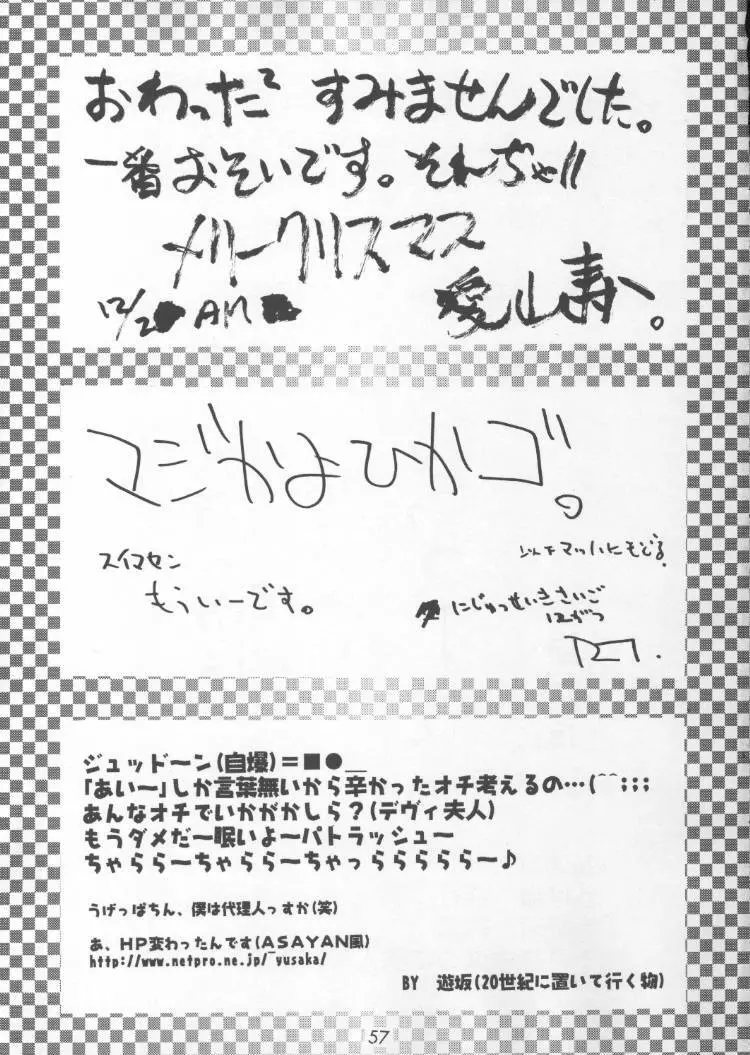 おわった〜 すみませんでした。
一番おそいです。それぢゃ!!
メリークリスマス
12/2 AM
愛山寿へ。
マジかよひかゴ。
スイマセン
もういーです。
にもどる。
にじゅっせいきさいご
12がつ
ジュッドーン(自爆)=■●＿
「あい〜」しか言葉無いから辛かったオチ考えるの…(^^;;;
あんなオチでいかがかしら?(デヴィ夫人)
もうダメだー眠いよーパトラッシュー
ちゃららーちゃららーちゃっらららららー♪
うげっぱちん、僕は代理人っすか(笑)
あ、HP変わったんです(ASAYAN風)
http://www.netpro.ne.jp/~yusaka/
BY 遊坂(20世紀に置いて行く物)
57